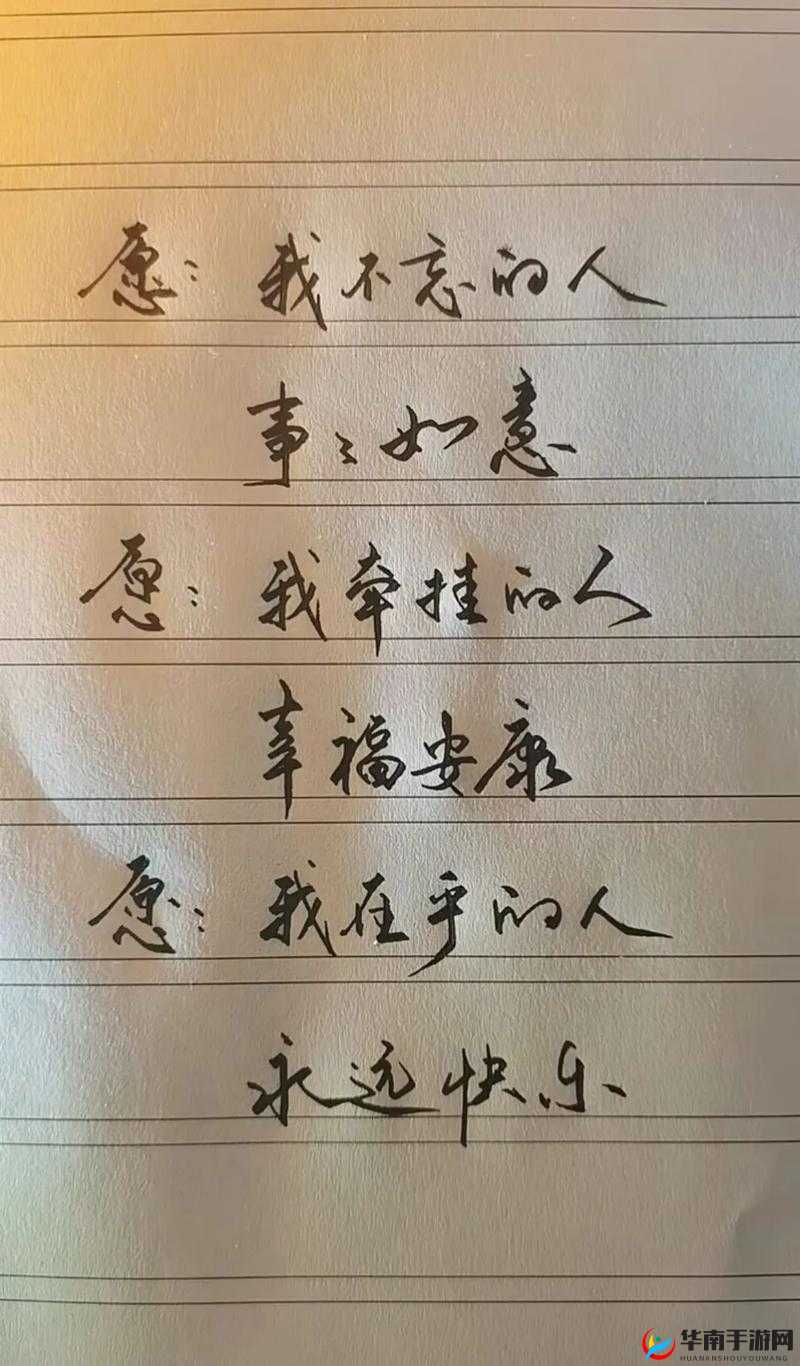 愿：我不忘的人
事々如意
愿：我牵挂的人
幸福安康
愿：我在乎的人
永远快乐
华南手游网
HUANANSHOUYOUWANG